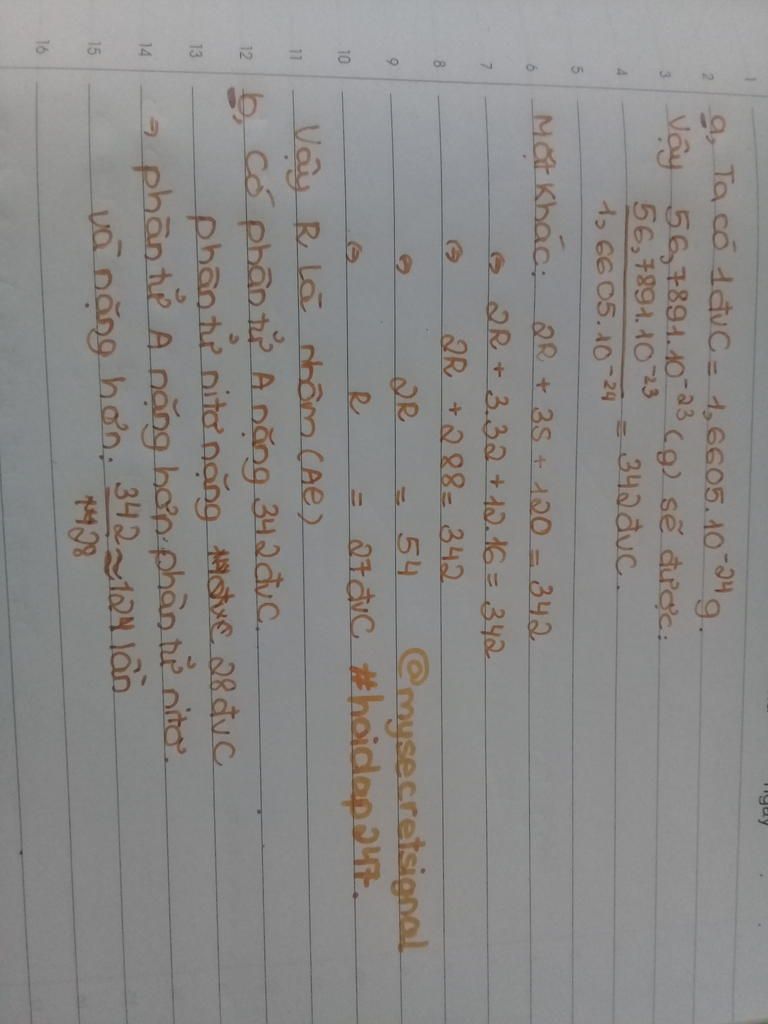 1
2
3
4
5
6
7
8
9
10
11
12
13
14
15
16
Ngày
a, Ta có 1đvC = 1,6605.10⁻²⁴g.
Vậy 56,7891.10⁻²³(g) sẽ được:
56,7891.10⁻²³
1,6605.10⁻²⁴ = 342đvC.
Mặt khác: 2R + 3S + 12O = 342
⇔ 2R + 3.32 + 12.16 = 342
⇔ 2R + 288 = 342
⇔ 2R = 54
⇔ R = 27đvC
@mysecretsignal
#hoidap247.
Vậy R là nhôm (Al)
b, Có phân tử A nặng 342đvC.
phân tử nitơ nặng 14đvC 28đvC
⇒ phân tử A nặng hơn phân tử nitơ.
và nặng hơn: 342 ≈ 12,1 lần
14 28